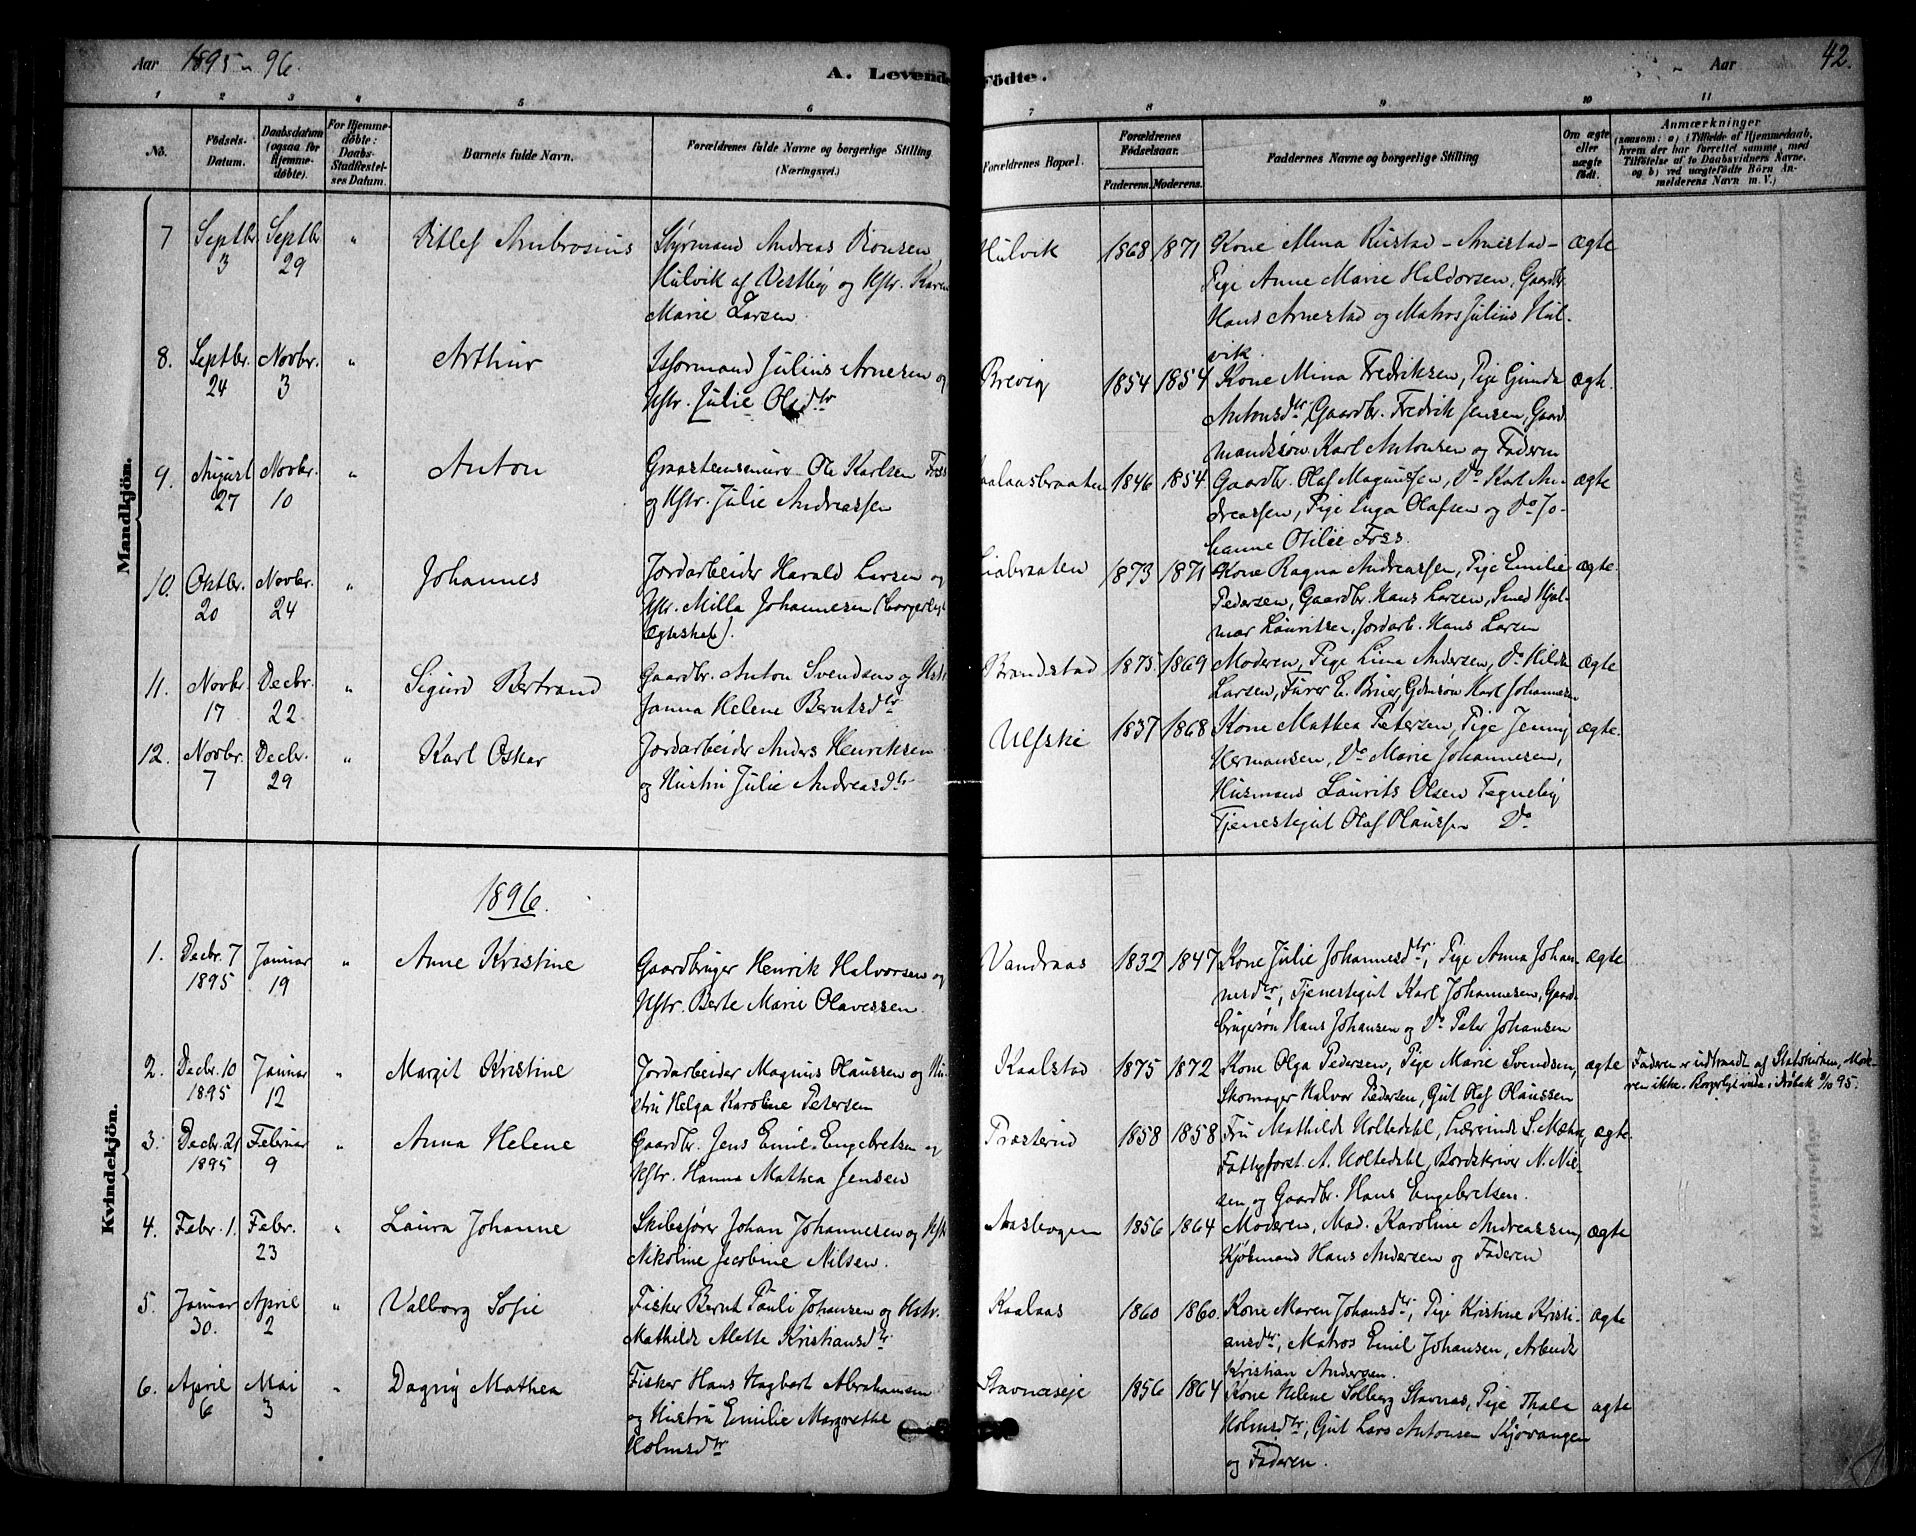 Aar 1895-96.
A. Levende Födte.
Aar
42.
1 2 3 4 5 6 7 8 9 10 11
No.
Födsels-Datum.
Daabsdatum (ogsaa for Hjemme-döbte).
For Hjemme-döbte: Daabs-Stadfæstel-ses Datum.
Barnets fulde Navn.
Forældrenes fulde Navne og borgerlige Stilling (Næringsvei.)
Forældrenes Bopæl.
Forældrenes Födselsaar.
Faderens. Moderens.
Faddernes Navne og borgerlige Stilling
Om ægte eller uægte födt.
Anmærkninger
(saasom: a) i Tilfælde af Hjemmedaab, hvem der har forrettet samme, med Tilföielse af to Daabsvidners Navne, og b) ved uægtefödte Börn An-melderens Navn m. V.)
Mandkjön.
7 Septbr. 3 Septbr. 29 " Ditlef Ambrosius
Styrmand Andreas Dionsen
Hulvik af Vestby og Hstr. Karen
Marie Larsen
Hulvik 1868 1871
Kone Mina Rustad - Arnestad -
Pige Anne Marie Haldorsen, Gaardbr.
Hans Arnestad og Matros Julius Hul-
vik.
ægte
8. Septbr. 24 Novbr. 3 " Arthur
Isformand Julius Arnesen og
Hstr. Julie Olsdtr
Brevig 1854 1854
Kone Mina Fredriksen, Pige Gunda
Antonsdtr, Gaardbr. Fredrik Jensen, Gaard-
mandssøn Karl Antonsen og Faderen
ægte.
9. August 27 Novbr. 10 " Anton
Graastensmurer Ole Karlsen Foss
og Hstr. Julie Andreassen
aalaasbraaten 1846 1854
Gaardbr. Olaf Magnussen, Do Karl An-
dreassen, Pige Inga Olafsen og Do Jo-
hanne Otilie Foss.
ægte
10. Oktbr. 20 Novbr. 24 " Johannes
Jordarbeider Harald Larsen og
Hstr. Milla Johannesen (borgerligt
Ægteskab).
Liabraaten 1873 1871
Kone Ragna Andreassen, Pige Emilie
Pedersen, Gaardbr. Hans Larsen, Smed Hjal-
mar Lauritsen, Jordarb. Hans Larsen
ægte.
11. Novbr. 17 Decbr. 22 " Sigurd Bertrand
Gaardbr. Anton Svendsen og Hstr.
Janna Helene Berntsdtr
Brandstad 1875 1869
Moderen, Pige Lina Andersen, Do Hilda
Larsen, Furer E. Bruer, Gdmsøn Karl Johannesen
ægte
12. Novbr. 7 Decbr. 29 " Karl Oskar
Jordarbeider Anders Henriksen
og Hustru Julie Andreasdtr
Ulfski 1837 1868
Kone Mathea Petersen, Pige Jenny
Hermansen, Do Marie Johannesen,
Husmand Laurits Olsen Tegneby
Tjenestegut Olaf Olaussen Do
ægte.
Kvindekjön.
1896.
1. Decbr. 7 1895 Januar 19 " Anne Kristine
Gaardbruger Henrik Halvorsen og
Hstr. Berte Marie Olavessen.
Vandraas 1832 1847
Kone Julie Johannesdtr, Pige Anna Johan-
nesdtr, Tjenestegut Karl Johannesen, Gaard-
brugersøn Hans Johansen og Do Peter Johansen
ægte
2. Decbr. 10 1895 Januar 12 " Margit Kristine
Jordarbeider Magnus Olaussen og Hu-
stru Helga Karoline Petersen
Kaalstad 1875 1872
Kone Olga Pedersen, Pige Marie Svendsen,
Skomager Halvor Pedersen, Gut Olaf Olaussen
ægte
Faderen er udtraadt af Statskirken, Mode-
ren ikke. Borgerligt viede i Drøbak 9/10 95.
3. Decbr. 21 1895 Februar 9 " Anna Helene
Gaardbr. Jens Emil Engebretsen og
Hstr. Hanna Mathea Jensen
Præsterud 1858 1858
Fru Mathilde Holtedahl, Lærerinde S. Mæhn
Fattigforst. A. Holtedahl, Bordskriver N. Niel-
sen og Gaardbr. Hans Engebretsen.
ægte.
4. Febr. 1. Febr. 23 " Laura Johanne
Skibsfører Johan Johannesen og Hstr
Nikoline Jecobine Nilsen.
Aasbogen 1856 1864
Moderen, Mad. Karoline Andreassen,
Kjøbmand Hans Andersen og Faderen
ægte
5. Januar 30. April 2 " Valborg Sofie
Fisker Bernt Pauli Johansen og Hstr.
Mathilde Alette Kristiansdtr
Kaalaas 1860 1860.
Kone Maren Johansdtr, Pige Kristine Kristi-
ansdtr, Matros Emil Johansen, Arbeider
Kristian Andersen.
ægte
6. April 6 Mai 3 " Dagny Mathea
Fisker Hans Hagbart Abrahamsen
og Hustru Emilie Margrethe
Holmsdtr
Stavnæseje 1856 1864
Kone Helene Solberg Stavnæs, Pige Thala
Holmsdtr, Gut Lars Antonsen Kjøvangen
og Faderen.
ægte